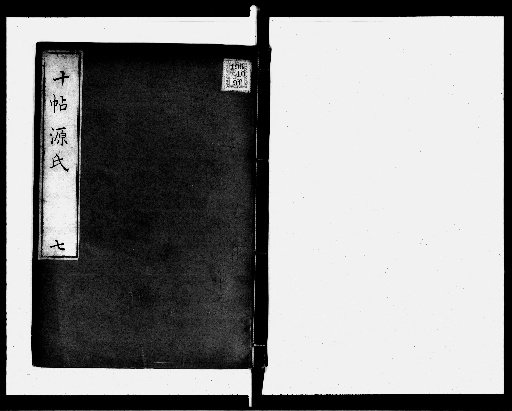 十帖源氏 七